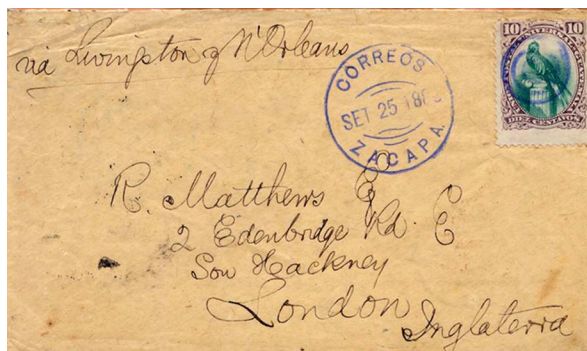 via Livingston y N'Orleans
CORREOS
SET 25 18
ZACAPA
10 10
DIEZ CENTAVOS
R. Matthews
2 Edenbridge Rd. E
Sou Hackney
London
Inglaterra